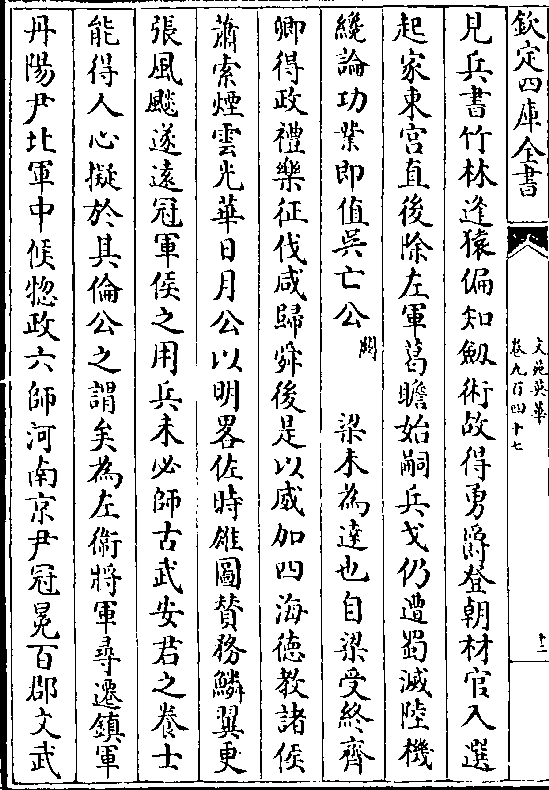 欽定四庫全書
文苑英華
卷九百四十七
十二
見兵書竹林逢猿偏知劔術故得勇爵登朝材官入選
起家東宫直後除左軍葛瞻始嗣兵戈仍遭蜀滅陸機
纔論功業即值吳亡公闕梁未為達也自梁受終齊
卿得政禮樂征伐咸歸舜後是以威加四海德教諸侯
蕭索煙雲光華日月公以明畧佐時雄圖贊務鱗翼更
張風飈遂遠冠軍侯之用兵未必師古武安君之養士
能得人心擬於其倫公之謂矣為左衛將軍尋遷鎮軍
丹陽尹北軍中候惣政六師河南京尹冠冕百郡文武